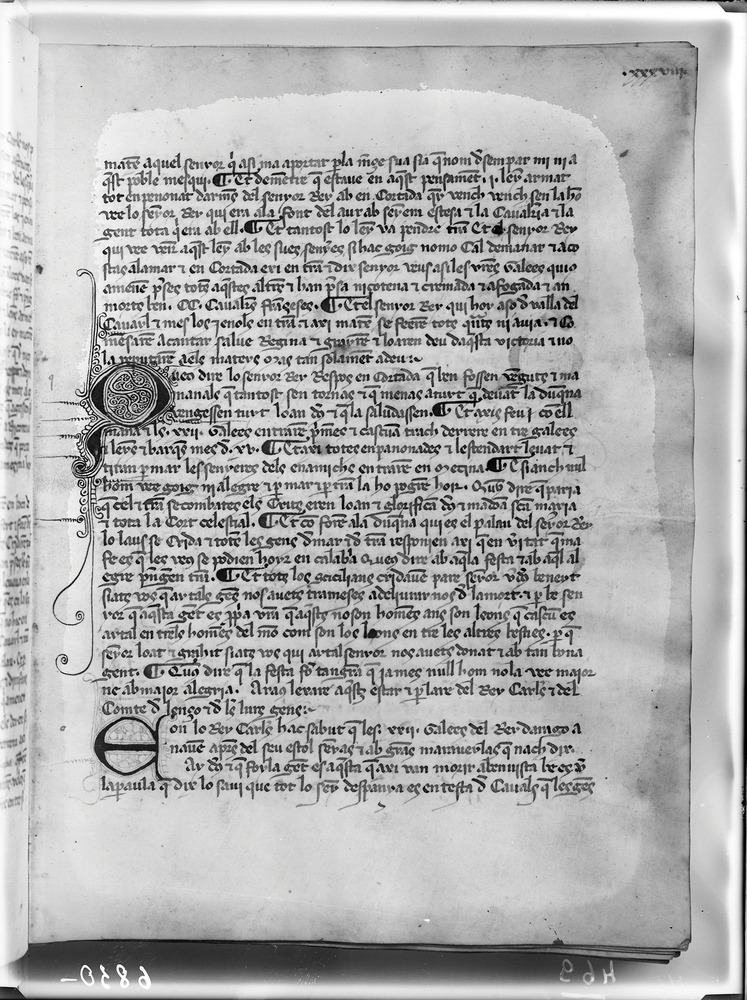 .xxxviii.
mate aquel senyor q̄ asi ma aportat p̱la m̄ge sua sia q̄ nom d̄sempar mi ni a
q̄st poble mesqui. ¶ Et dementre q̄ estaue en aq̄st pensamēt .j. leỹ armat
tot en penonat darmes del senyor Rey ab en Cortada qr̄ vench vench sen la hō
vee lo senyor Rey qui era ala font del aur ab sēyera estesa ⁊ la Caualria ⁊ la
gent tota q̄ era ab ell. ¶ Et tantost lo leỹ va pendre tr̄a Et el senyor Rey
qui vee venir aq̄st leỹ ab les sues senyes si hac goig nomo Cal demanar ⁊ aco
stas ala mar ⁊ en Cortada exi en tr̄a ⁊ dix senyor veus asi les vr̄es Galees quius
amenē p̱ses totes aq̄stes altres ⁊ han p̱sa nicotena ⁊ cremada ⁊ afogada ⁊ an
mortes ben .CC. Caualr̄s frāceses. ¶ Et el senyor Rey qui hoy aso d̄valla del
Cauayl ⁊ mes los jenols en tr̄a ⁊ axi mateix se feeren tots qūts ni auia. ⁊ Co
mesaren acantar salue Regina ⁊ grayre ⁊ loaren deu daq̄sta victoria ⁊ no
la reputarē aells mateys mas tan solament a deu :~
Queus dire lo senyor Rey Respos en Cortada q̄ ben fossen vēguts ⁊ ma
manals q̄ tantost sen tornas ⁊ q̄ menas aturt q̄ deuāt la duāna
vengessen tuyt loan dō ⁊ q̄ la saludassen. ¶ Et axis feu ⁊ co ell
mana ⁊ ls .xxii. Galees entrarē p̱mes ⁊ cascūa tirach derrere en tre galees
⁊ leỹs ⁊ barq̄s mes d̄ .xv. ¶ Et axi totes enpanonades ⁊ lestendart leuat ⁊
tiran p̱ mar les senyeres dels enamichs en trarē en Mecina. ¶ Esi anch nul
hom vee goig ni alegre ⁊ p̱ mar ⁊ p̱ tr̄a la ho pogrē hoir. Queus dire q̄ paria
q̄ cel ⁊ tr̄a se combates els Crits eren loan ⁊ glorificā dō ⁊ madōa scā maria
⁊ tota la Cort celestial. ¶ Et co foren ala duāna qui es el palau del senyor Rey
lo laus se Crida ⁊ tots les gens d̄ mar id̄ tr̄a responien axi q̄ en v̄itat q̄ ma
fe es q̄ les veus se podien hoyr en calabā Queus dire ab aq̄la festa ⁊ ab aq̄l al
egre p̱ngen tr̄a. ¶ Et tots los scicilians cridauē pare senyor v̄dō beneyt
siats vos q̄ ay tals gēs nos auets trameses adeliurar nos d̄ la mort. ⁊ p̱ be sen
yor q̄ aq̄sta gēt es p̱pia vr̄a q̄ aq̄sts no son homēs ans son leons q̄ cascū es
aytal en trels homēs del mō com son los leons en tre les altres besties. p̱ q̄
sēyer loat ⁊ graḩit siats vos qui aytal senyor nos auets donat ⁊ ab tan bona
gent. ¶ Queus dire q̄ la festa fō tangran q̄ james null hom no la vee maior
ne ab maior alegria. Ara us lexare aq̄sts estar ⁊ p̱lare del Rey Carles ⁊ del
Comte d̄ lenço ⁊ d̄ ls̄ lurs gens :~
Con lo Rey Carles hac sabut q̄ les .xxii. Galees del Rey darago a
nauē apres del seu estol senyas ⁊ ab grās marauelas q̄ nach dix.
Ay dō ⁊ q̄ folla gēt es aq̄sta q̄ axi van morir aben uista be es v̄
la paraula q̄ dix lo saui que tot lo sēy despanya es en testa d̄ Cauals q̄ les gēs
6830-
469